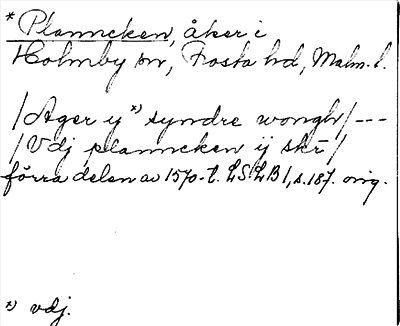 * Planncken, åker i
Holmby sn, Frosta hd, Malm. l.
/Ager y *) syndre wongh/ ---
/Vdj planncken ij skr/
förra delen av 1570-t. LSLB1, s. 187. orig.
*) vdj.